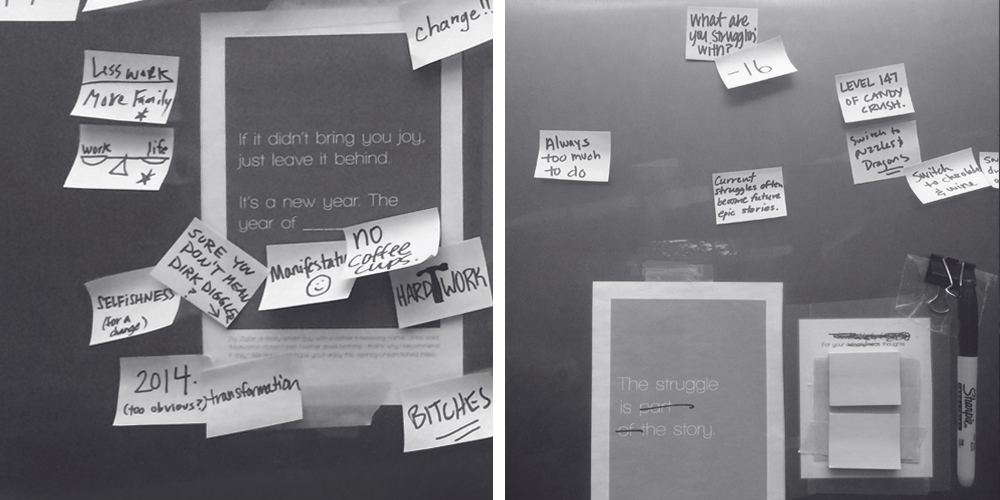 change!!
Less work
More Family
work life
If it didn't bring you joy,
just leave it behind.
It's a new year. The
year of
SURE YOU
DON'T MEAN
DIRK DIGGLER
no
coffee
cups.
HARD WORK
SELFISHNESS
(for a
change)
2014.
(too obvious?)
transformation
BITCHES
What are
you strugglin'
with?
-16
LEVEL 147
OF CANDY
CRUSH.
Always
too much
to do
Switch to
puzzles &
Dragons
Switch
to chocolate
& wine
Current
struggles often
become future
epic stories.
The struggle
is part
of the story.
For your thoughts
Sharpie